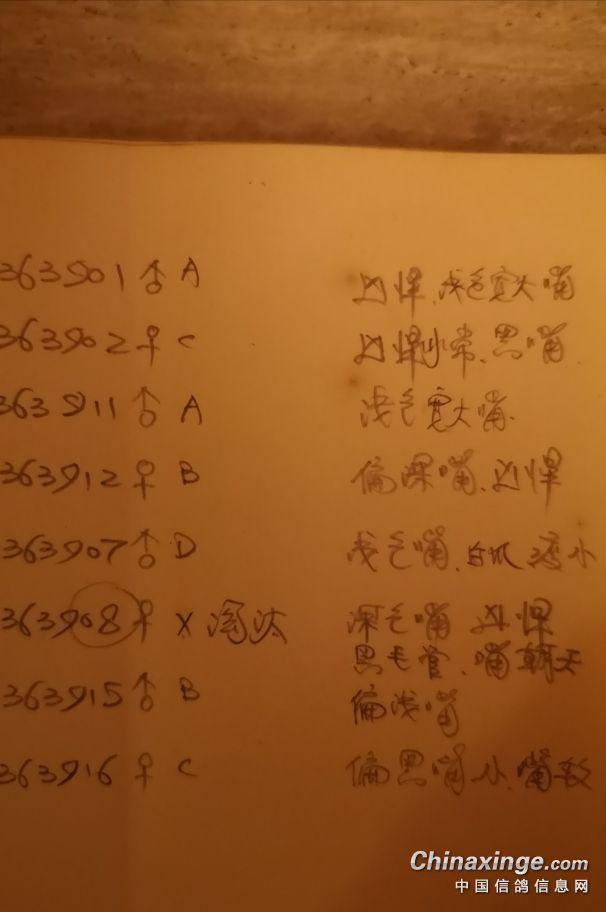 363901 ♂ A 凶悍.浅色宽大嘴
363902 ♀ C 凶悍非常.黑嘴
363911 ♂ A 浅色宽大嘴.
363912 ♀ B 偏深嘴.凶悍
363907 ♂ D 浅色嘴.白爪 小
363908 ♀ X 淘汰 深色嘴 凶悍
黑毛管.嘴朝天
363915 ♂ B 偏浅嘴
363916 ♀ C 偏黑嘴小.嘴软
Chinaxinge.com
中国信鸽信息网